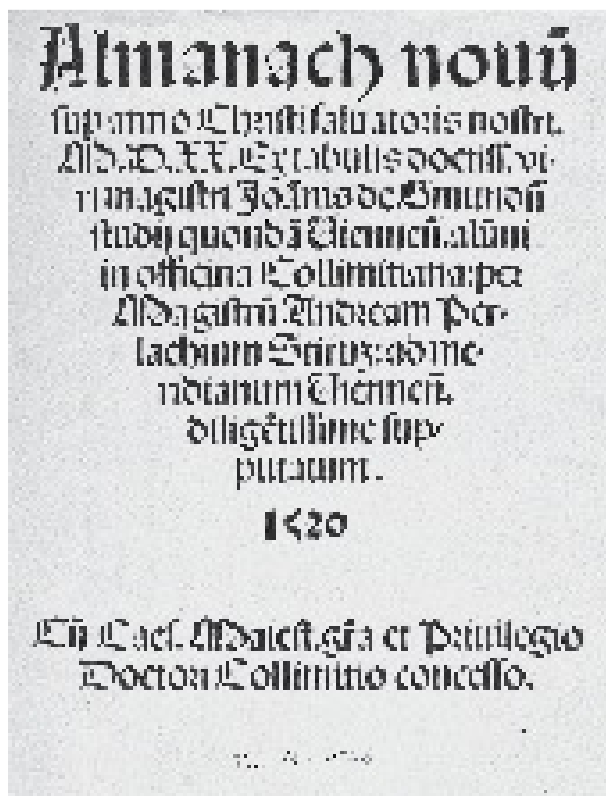 Almanach nouū
sup anno Christi saluatoris nostri.
M.D.XX. Ex tabulis doctiss. vi-
ri magistri Joānis de Gmundū
studij quondā Viennēn. alūni
in officina Collimitiana: per
Magistrū Andream Per-
lachium Stirūz: ad me-
ridianum Viennēn.
diligētissime sup-
putatum.
1520
Cū Caes. Maiest. grā et Priuilegio
Doctori Collimitio concesso.